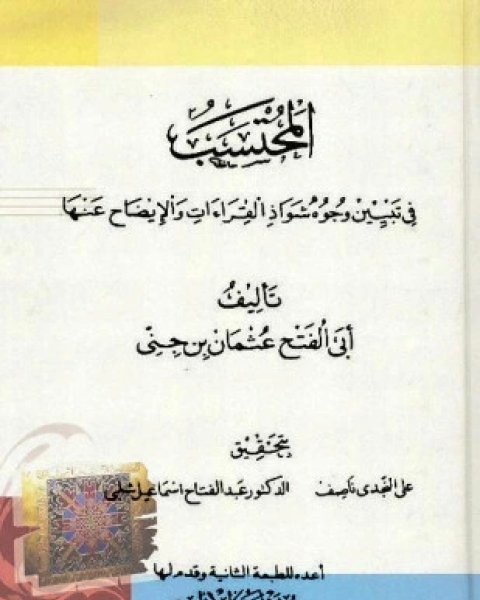 المُحْتَسَبُ
فِي تَبْيِيْنِ وُجُوْهِ شَوَاذِ القِرَاءَاتِ وَالإِيْضَاحِ عَنْهَا
تَأْلِيْفُ
أَبِي الفَتْحِ عُثْمَان بِن جِنِّي
بِتَحْقِيْقِ
علي النجدي ناصف الدكتور عبد الفتاح اسماعيل شلبي
أعده للطبعة الثانية وقدم لها